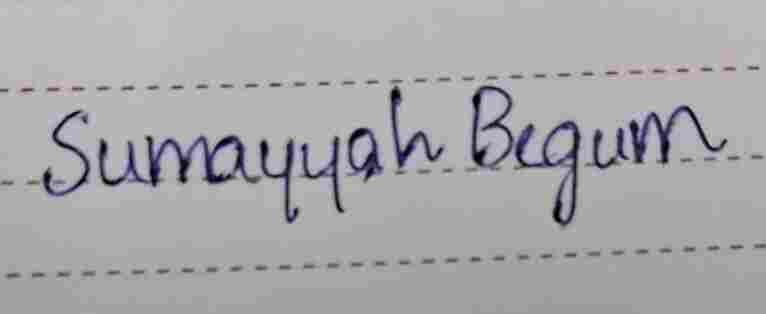 Sumayyah Begum